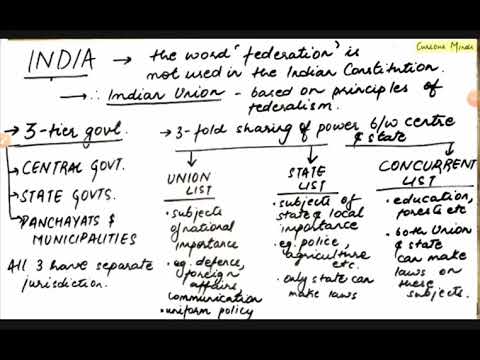 Curious Minds
INDIA → the word 'federation' is
not used in the Indian Constitution.
→ ∴ Indian Union - based on principles of
federalism.
→ 3-tier govt.
→ CENTRAL GOVT.
→ STATE GOVTS.
→ PANCHAYATS &
MUNICIPALITIES
All 3 have separate
jurisdiction.
→ 3-fold sharing of power b/w centre
& state
UNION
LIST
• subjects
of national
importance
• eg. defence,
foreign
affairs
communication
• uniform policy
STATE
LIST
• subjects of
state & local
importance
• eg. police,
agriculture
etc.
• only state can
make laws
CONCURRENT
LIST
• education,
forests etc
• both Union
& state
can make
laws on
these
subjects.